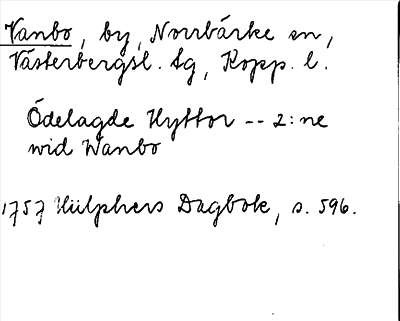 Vanbo, by, Norrbärke sn,
Västerbergsl. tg, Kopp. l.
Ödelagde Hyttor -- 2:ne
wid Wanbo
1757 Hülphers Dagbok, s. 596.